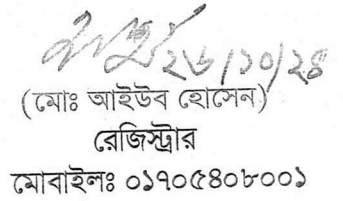 ২৬/১০/২৪
(মোঃ আইউব হোসেন)
রেজিস্ট্রার
মোবাইলঃ ০১৭০৫৪০৮০০১